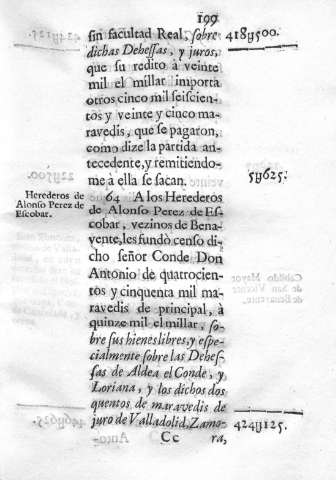 199
sin facultad Real, sobre 418y500.
dichas Dehessas, y juros,
que su redito à veinte
mil el millar importa
otros cinco mil seiscien-
tos y veinte y cinco ma-
ravedis, que se pagaron,
como dize la partida an-
tecedente, y remitiendo-
me à ella se sacan. 5y625.
Herederos de
Alonso Perez de
Escobar.
64 A los Herederos
de Alonso Perez de Es-
cobar, vezinos de Bena-
vente, les fundò censo di-
cho señor Conde Don
Antonio de quatrocien-
tos y cinquenta mil ma-
ravedis de principal, à
quinze mil el millar, so-
bre sus bienes libres, y espe-
cialmente sobre las Dehes-
sas de Aldea el Conde, y
Loriana, y los dichos dos
quentos de maravedis de
juro de Valladolid, Zamo- 424y125.
Cc ra,